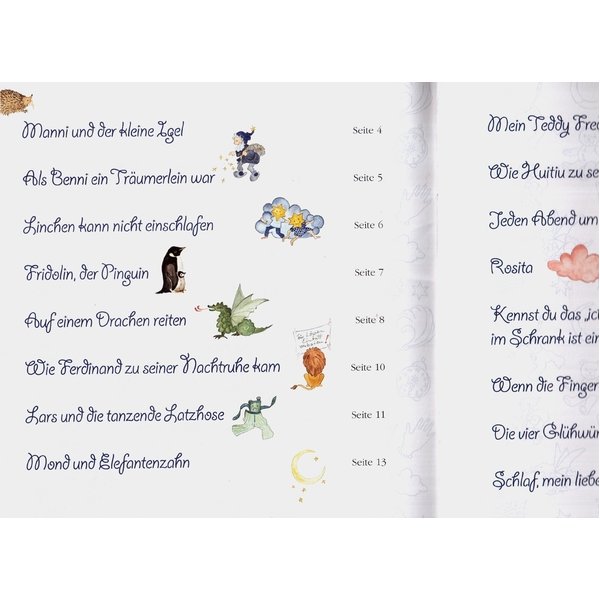 Manni und der kleine Igel Seite 4
Als Benni ein Träumerlein war Seite 5
Linchen kann nicht einschlafen Seite 6
Fridolin, der Pinguin Seite 7
Auf einem Drachen reiten Seite 8
Wie Ferdinand zu seiner Nachtruhe kam Seite 10
Lars und die tanzende Latzhose Seite 11
Mond und Elefantenzahn Seite 13
Mein Teddy Fred
Wie Huitiu zu se
Jeden Abend um
Rosita
Kennst du das „ich
im Schrank ist ein
Wenn die Finger
Die vier Glühwür
Schlaf, mein liebe